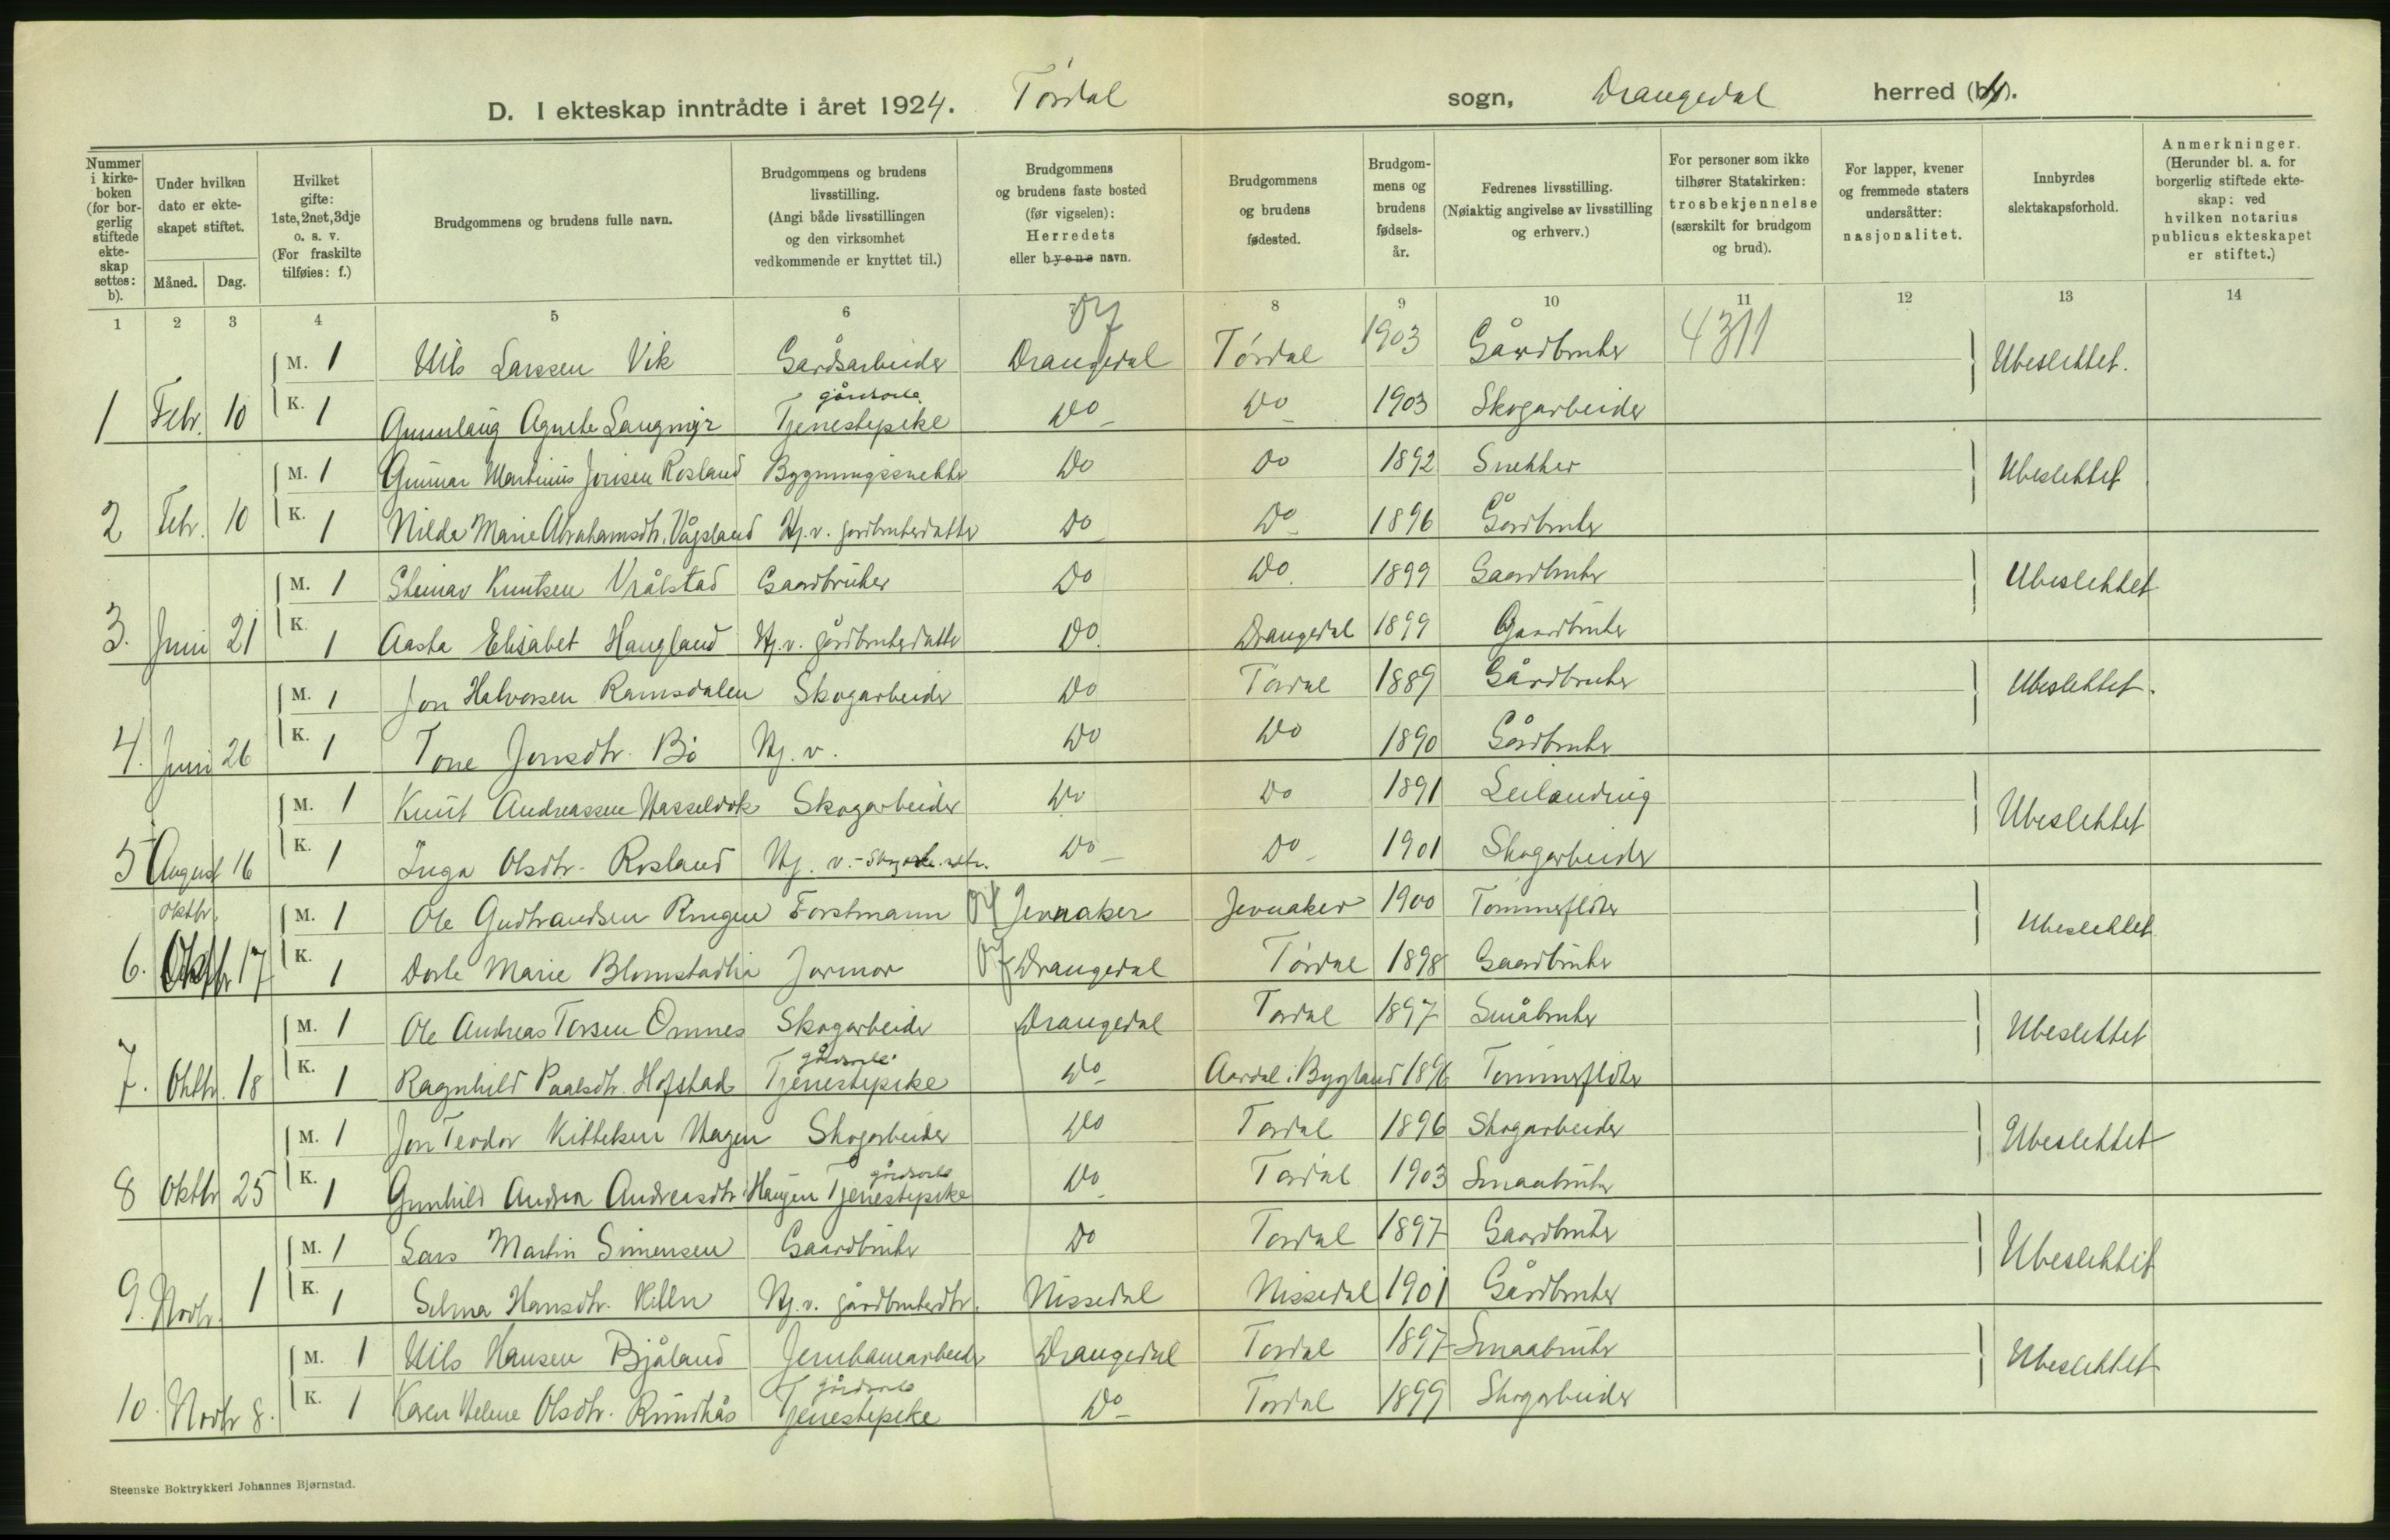 D. I ekteskap inntrådte i året 1924. Tørdal sogn, Drangedal herred (by).
Nummer i kirkeboken (for borgerlig stiftede ekteskap settes: b).
Under hvilken dato er ekteskapet stiftet.
Måned. Dag.
Hvilket gifte: 1ste, 2net, 3dje o. s. v. (For fraskilte tilføies: f.)
Brudgommens og brudens fulle navn.
Brudgommens og brudens livsstilling. (Angi både livsstillingen og den virksomhet vedkommende er knyttet til.)
Brudgommens og brudens faste bosted (før vigselen): Herredets eller byens navn.
Brudgommens og brudens fødested.
Brudgommens og brudens fødselsår.
Fedrenes livsstilling. (Nøiaktig angivelse av livsstilling og erhverv.)
For personer som ikke tilhører Statskirken: trosbekjennelse (særskilt for brudgom og brud).
For lapper, kvener og fremmede staters undersåtter: nasjonalitet.
Innbyrdes slektskapsforhold.
Anmerkninger. (Herunder bl. a. for borgerlig stiftede ekteskap: ved hvilken notarius publicus ekteskapet er stiftet.)
1 2 3 4 5 6 8 9 10 11 12 13 14
M. 1 Nils Larssen Vik Gårdsarbeider Drangedal Tørdal 1903 Gårdbruker 4311 Ubeslektet.
1 Febr. 10 K. 1 Gunnlaug Agnete Langmyr gårdsarb. Tjenestepike Do Do 1903 Skogarbeider
M. 1 Gunnar Martinius Jonsen Rosland Bygningssnekker Do Do 1892 Snekker Ubeslektet
2 Febr. 10 K. 1 Nilda Marie Abrahamsdtr. Vågsland Hj. v. gardbrukerdatter Do Do 1896 Gårdbruker
M. 1 Steinar Knutsen Vrålstad Gaardbruker Do Do. 1899 Gaardbruker Ubeslektet
3. Juni 21 K. 1 Aasta Elisabet Haugland Hj. v. gårdbrukerdatter Do. Drangedal 1899 Gaardbruker
M. 1 Jon Halvorsen Ramsdalen Skogarbeider Do Tørdal 1889 Gårdbruker Ubeslektet.
4. Juni 26 K. 1 Tone Jonsdtr. Bø Hj. v. Do Do 1890 Gårdbruker
M. 1 Knut Andreassen Hasseldok Skogarbeider Do Do 1891 Leilending Ubeslektet
5 August 16 K. 1 Inga Olsdtr. Rosland Hj. v. - Skogarb. dtr. Do Do 1901 Skogarbeider
Oktbr. M. 1 Ole Gudbrandsen Ringen Forstmann Jevnaker Jevnaker 1900 Tømmerfløter Ubeslektet.
6. Oktbr 17 K. 1 Dorte Marie Blomstadli Jormor Drangedal Tørdal 1898 Gaardbruker
M. 1 Ole Andreas Torsen Omnes Skogarbeider Drangedal Tørdal 1897 Småbruker Ubeslektet
7. Oktbr. 18 K. 1 Ragnhild Paalsdtr. Hofstad gårdsarb. Tjenestepike Do Aardal i Bygland 1896 Tømmerfløter
M. 1 Jon Teodor Kittelsen Hagen Skogarbeider Do Tørdal 1896 Skogarbeider Ubeslektet
8 Oktbr 25 K. 1 Gunhild Andrea Andreasdtr Haugen gårdsarb Tjenestepike Do Tørdal 1903 Smaabruker
M. 1 Lars Martin Simensen Gaardbruker Do Tørdal 1897 Gaardbruker Ubeslektet
9. Novbr. 1 K. 1 Selma Hansdtr. Hj. v. gårdbrukerdtr. Nissedal Nissedal 1901 Gårdbruker
M. 1 Nils Hansen Bjåland Jernbanearbeider Drangedal Tørdal 1897 Smaabruker Ubeslektet
10. Novbr 8. K. 1 Karen Helene Olsdtr. Rundhås gårdsarb Tjenestepike Do Tørdal 1899 Skogarbeider
Steenske Boktrykkeri Johannes Bjørnstad.